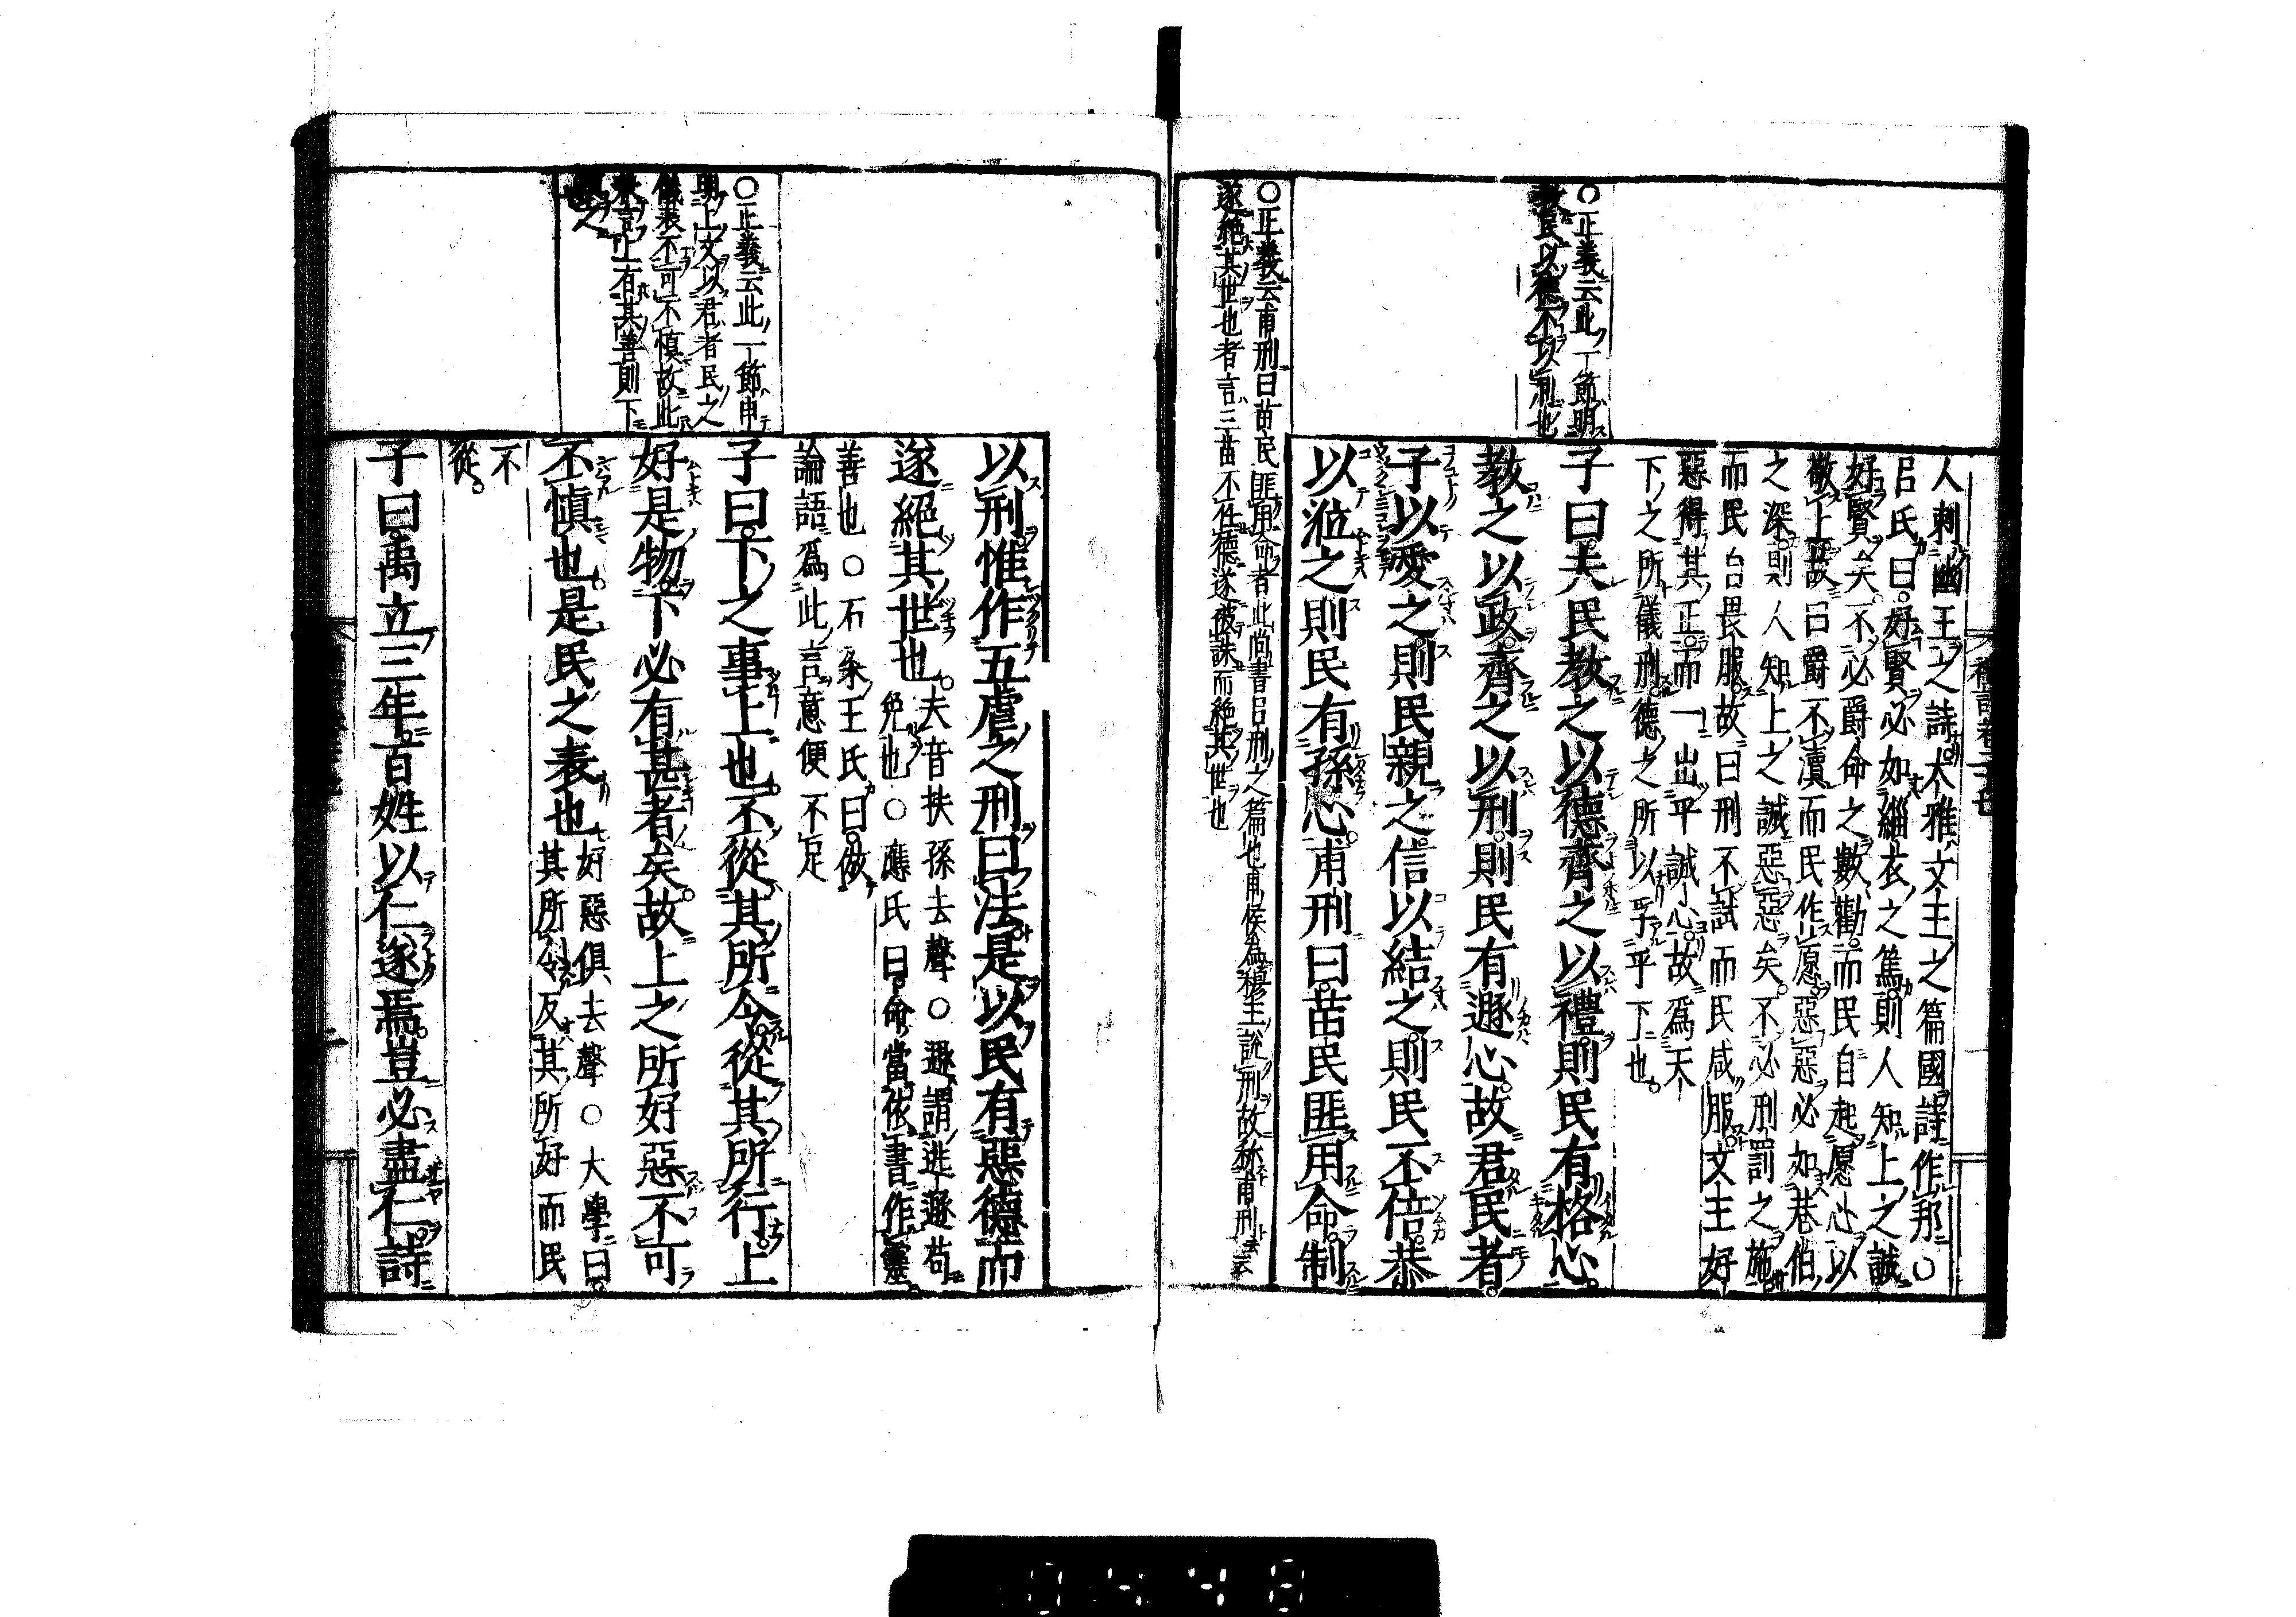 禮記卷二十七
○正義云此一節明
教民以德不以刑也
○正義云甫刑曰苗民匪用命者此尚書呂刑之篇也甫侯爲穆王說刑故稱甫刑
遂絕其世也者言三苗不任德遂被誅而絕其世也
人刺幽王之詩大雅文王之篇國詩作邦○
呂氏曰好賢必如緇衣之篤則人知上之誠
好賢矣不必爵命之數勸而民自起愿心以
敬上故曰爵不瀆而民作愿惡惡必如巷伯
之深則人知上之誠惡惡矣不必刑罰之施
而民自畏服故曰刑不試而民咸服文王好
惡得其正而一出乎誠心故爲天
下之所儀刑德之所以孚乎下也
子曰夫民教之以德齊之以禮則民有格心
教之以政齊之以刑則民有遯心故君民者
子以愛之則民親之信以結之則民不倍恭
以涖之則民有孫心甫刑曰苗民匪用命制
○正義云此一節申
明上文以君者民之
儀表不可不慎故此
言上有其善則下
以刑惟作五虐之刑曰法是以民有惡德而
遂絕其世也
夫音扶孫去聲○遯謂逃遯苟
免也○應氏曰命當依書作靈
善也○石梁王氏曰倣
論語爲此言意便不足
子曰下之事上也不從其所令從其所行上
好是物下必有甚者矣故上之所好惡不可
不慎也是民之表也
好惡俱去聲○大學曰
其所令反其所好而民
不
從
子曰禹立三年百姓以仁遂焉豈必盡仁詩